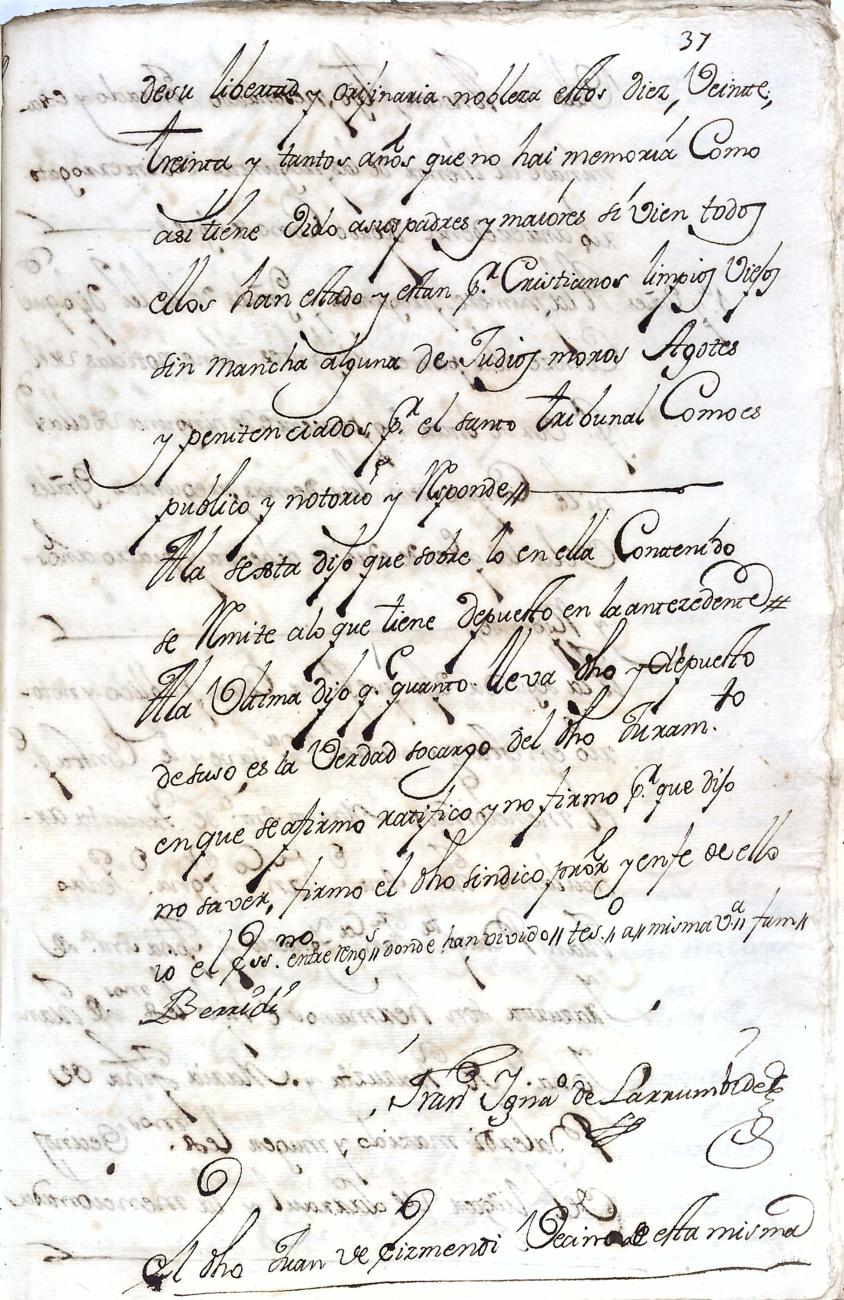 37
desu libertad y orijinaria nobleza estos diez, Veinte,
treinta y tantos años que no hai memoria Como
asi tiene oido asus padres y maiores si vien todos
ellos han estado y estan p.r Cristianos limpios Viejos
sin mancha alguna de Judios moros Agotes
y penitenciados p.r el santo tribunal Comoes
publico y notorio y Responde//
Ala sesta dijo que sobre lo en ella Contenido
se Rmite alo que tiene depuesto en la antezedente//
Ala Vltima dijo q.e quanto lleva dho y depuesto
desuso es la Verdad socargo del dho Juram.to
enque seafirmo ratifico y no firmo p.r que dijo
no saver, firmo el dho sindico pror.l y enfe de ello
io el ess.no entrerengs // donde han vivido // tes.o // a // misma v.a // fum //
Berridi
Fran.co Igna.o de Larrumbide
El dho Juan de Eizmendi Vecino de esta misma